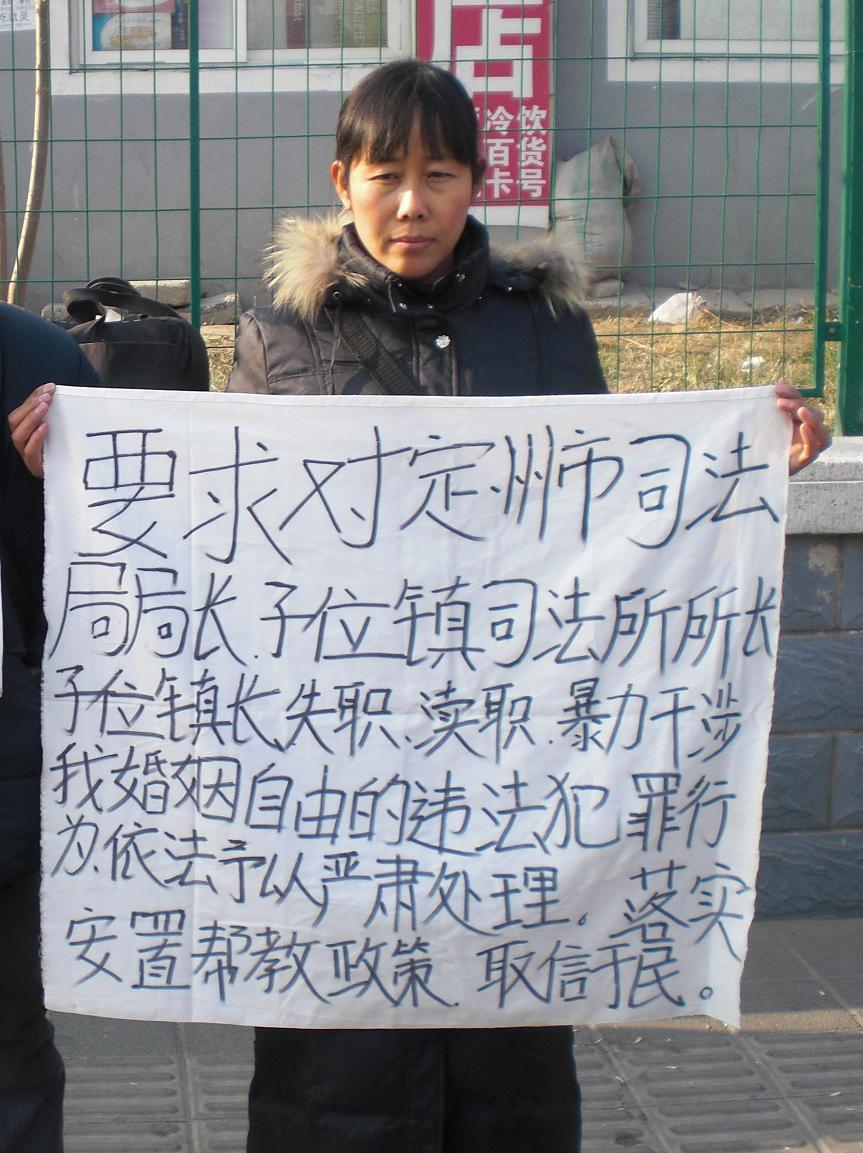 店
冷饮
百货
卡号
要求对定州市司法
局局长.子位镇司法所所长
子位镇长失职、渎职.暴力干涉
我婚姻自由的违法犯罪行
为.依法予以严肃处理。落实
安置帮教政策.取信于民。